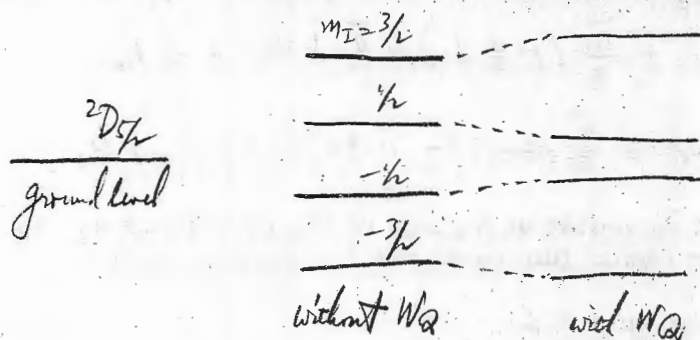 m_I = 3/2
1/2
²D5/2
ground level
-1/2
-3/2
without W_Q
with W_Q